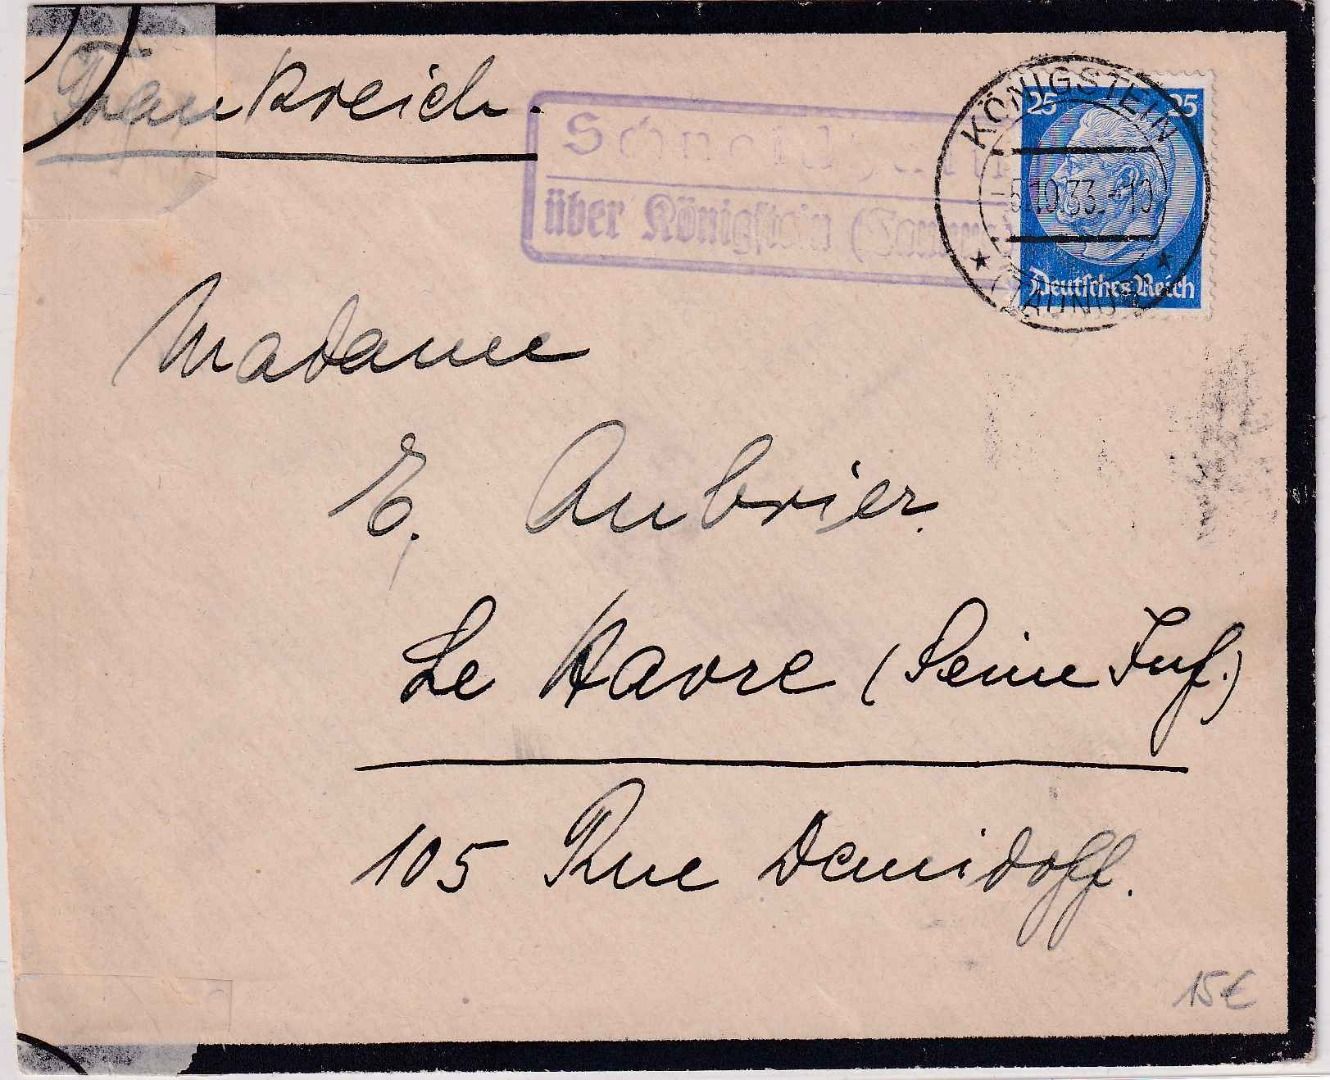 Frankreich.
über Königstein (Taunus)
KÖNIGSTEIN
(TAUNUS)
-5.10.33.-10
25 25
Deutsches Reich
Madame
E. Aubrier.
Le Havre (Seine Inf.)
105 Rue Demidoff.
15€